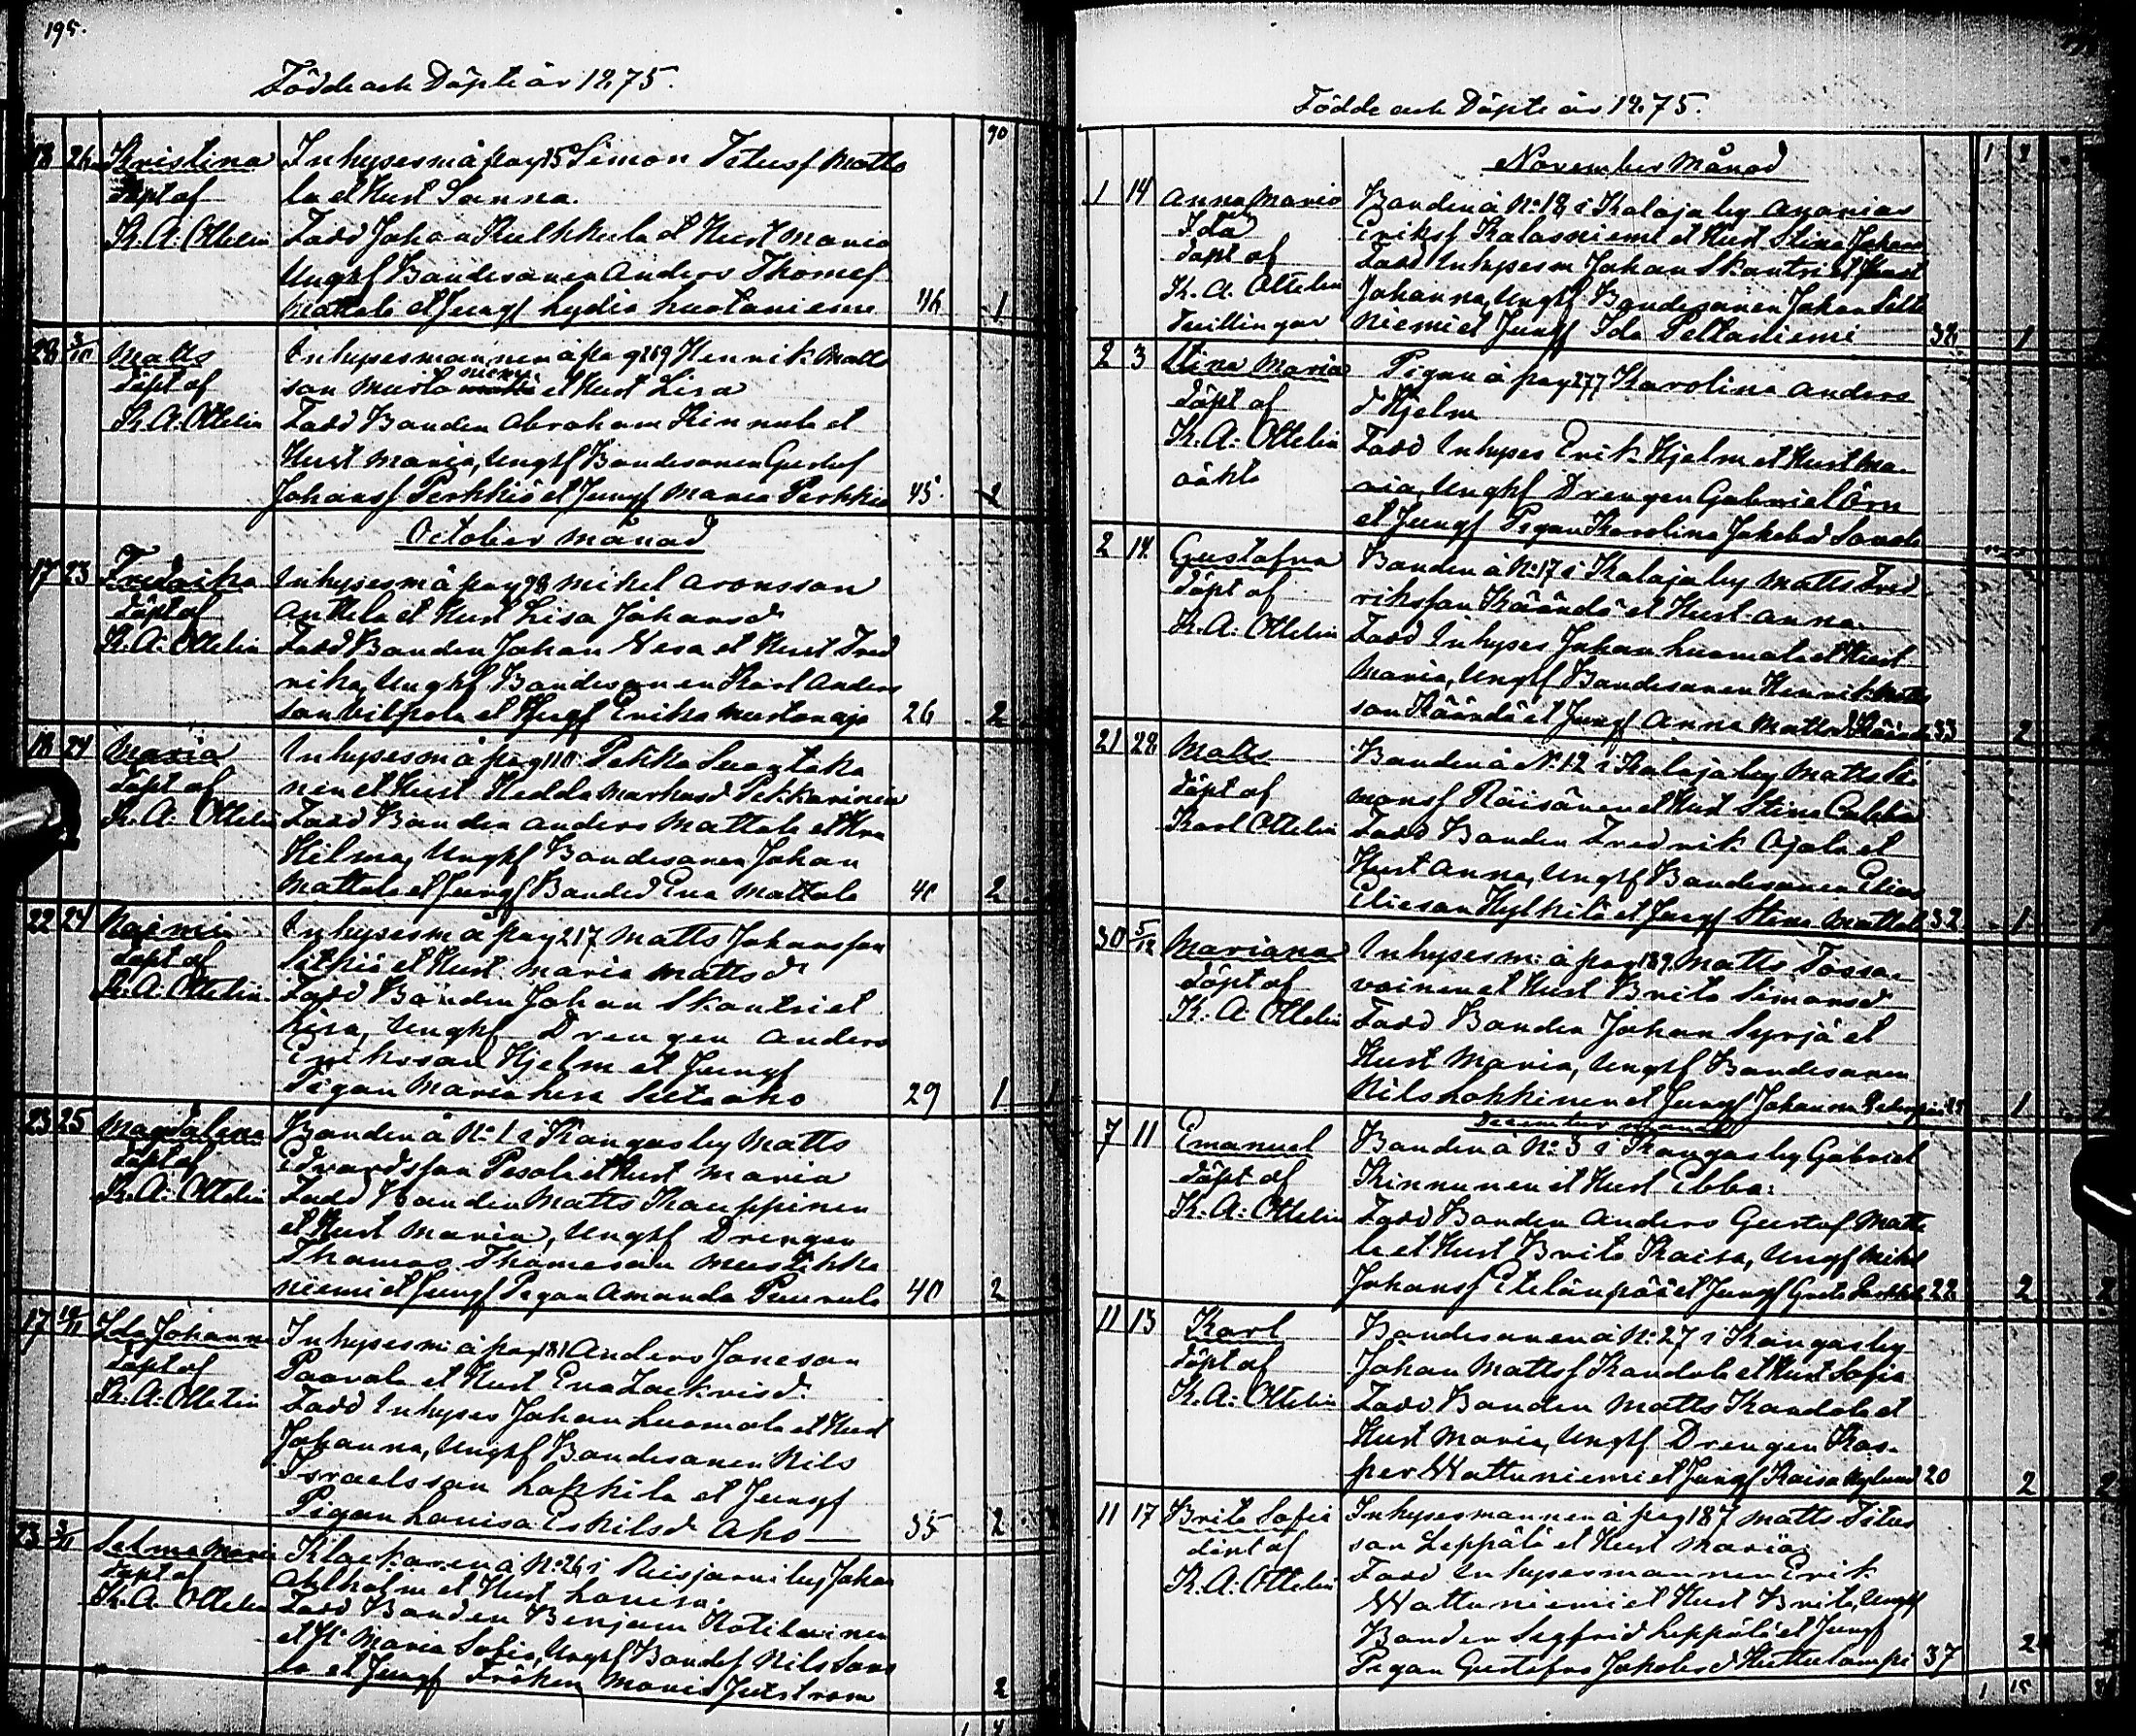 195.
Födde och Döpte år 1875.
90
18 26 Kristina Inhysesm å pag 25 Simon Titusf Matta
döpt af la et Hust Sanna.
K. A. Ottelin Fadd Johan Kulkkula et Hust Maria
Ungkf Bondesonen Anders Thomef
Mattala et Jungf Lydia Luotoniemi 46 1
28 3/10 Matts Inhysesmannen å pag 269 Henrik Matts
döpt af son Musta niemi et Hust Lisa
K. A. Ottelin Fadd Bonden Abraham Kinnula et
Hust Maria, Ungkf Bondesonen Gustaf
Johansf Perkkiö et Jungf Maria Perkkiö 45 2
October månad
17 23 Fredrika Inhysesm å pag 98 Mikel Aronsson
döpt af Anttila et Hust Lisa Johansd
K. A. Ottelin Fadd Bonden Johan Vesa et Hust Fred
rika, Ungkf Bondesonen Karl Anders
son Vilpola et Jungf Erika Mustonoja 26 2
18 24 Maria Inhysesm å pag 110 Pekka
döpt af nen et Hust Hedda Markusd Pekkarinen
K. A. Ottelin Fadd Bonden Anders Mattala et Hu
Hilma, Ungkf Bondesonen Johan
Mattala et Jungf Bonded Eva Mattala 40 2
22 24 Naimi Inhysesm å pag 217 Matts Johansson
döpt af et Hust Maria Mattsd
K. A. Ottelin Fadd Bonden Johan Skantsi et
Lisa, Ungkf Drengen Anders
Eriksson Hjelm et Jungf
Pigan Maria Lisa 29 1
23 25 Magdalena Bonden å No 1 i Kangas by Matts
döpt af Edvardsson Pesola et Hust Maria
K. A. Ottelin Fadd Bonden Matts Kauppinen
et Hust Maria, Ungkf Drengen
Thomas Thomeson Mustikka
niemi et Jungf Pigan Amanda Purula 40 2
17 Ida Johanna Inhysesm: å pag 181 Anders Joneson
döpt af Paavola et Hust Eva Zackrisd.
K. A. Ottelin Fadd Inhyses Johan Luomala et Hust
Johanna, Ungkf Bondesonen Nils
Israelsson Lakkila et Jungf
Pigan Lovisa Eskilsd Aho 35 2
23 Selma Maria Klockaren å No 26 i Reisjärvi by Johan
döpt af Ahlholm et Hust Lovisa.
K. A. Ottelin Fadd Bonden Benjam Kotilainen
et H: Maria Sofia, Ungkf Bondef Nils Sara
la et Jungf Fröken Maria 2
Födde och Döpte år 1875.
November Månad
1 14 Anna Maria Bonden å No 18 i Kalaja by Ananias
Ida Eriksf Kalasniemi et Hust Stina Johansd
döpt af Fadd Inhysesm Johan Skantsi et Hust
K. A. Ottelin Johanna, Ungkf Bondesonen Johan Selta
Tvillingar niemi et Jungf Ida Peltoniemi 38 1
2 3 Stina Maria Pigan å pag 277 Karolina Anders
döpt af d Hjelm
K. A. Ottelin Fadd Inhyses Erik Hjelm et Hust Ma
oäkta ria, Ungkf Drengen Gabriel Örn
et Jungf Pigan Karolina Jakobsd
2 14 Gustafva Bonden å No 17 i Kalaja by Matts Fred
döpt af riksson Käändä et Hust Anna
K. A. Ottelin Fadd Inhyses Johan Luomala et Hust
Maria, Ungkf Bondesonen Henrik Matts
son Käändä et Jungf Anna Mattsd Käändä 33 2
21 28 Matts Bonden å No 12 i Kalaja by Matts Si
döpt af monsf Räisänen et Hust Stina
Karl Ottelin Fadd Bonden Fredrik Ojala et
Hust Anna, Ungkf Bondesonen Elias
Elieson Hylkilä et Jungf Stina Mattala 32 1
30 5/12 Mariana Inhysesm: å pag 189 Matts Tossa
döpt af vainen et Hust Brita Simonsd
K. A. Ottelin Fadd Bonden Johan Syrjä et
Hust Maria, Ungkf Bondesonen
Nils Lokkinen et Jungf Johanna 1
December månad
7 11 Emanuel Bonden å No 3 i Kangas by Gabriel
döpt af Kinnunen et Hust Ebba:
K. A. Ottelin Fadd Bonden Anders Gustaf Matta
la et Hust Brita Kaisa, Ungf Mikel
Johansf Etelänpää et Jungf Greta 22 2
11 13 Karl Bondesonen å No 27 i Kangas by
döpt af Johan Mattsf Kandola et Hust Sofia
K. A. Ottelin Fadd Bonden Matts Kandola et
Hust Maria, Ungkf Drengen Kas
per Wattuniemi et Jungf Kaisa Nylund 20 2
11 17 Brita Sofia Inhysesmannen å pag 187 Matts Titus
döpt af son Leppälä et Hust Maria
K. A. Ottelin Fadd Inhysesmannen Erik
Wattuniemi et Hust Brita, Ungkf
Bonden Segfrid Leppälä et Jungf
Pigan Gustafva Jakobsd Huttulampi 37 2
1 15